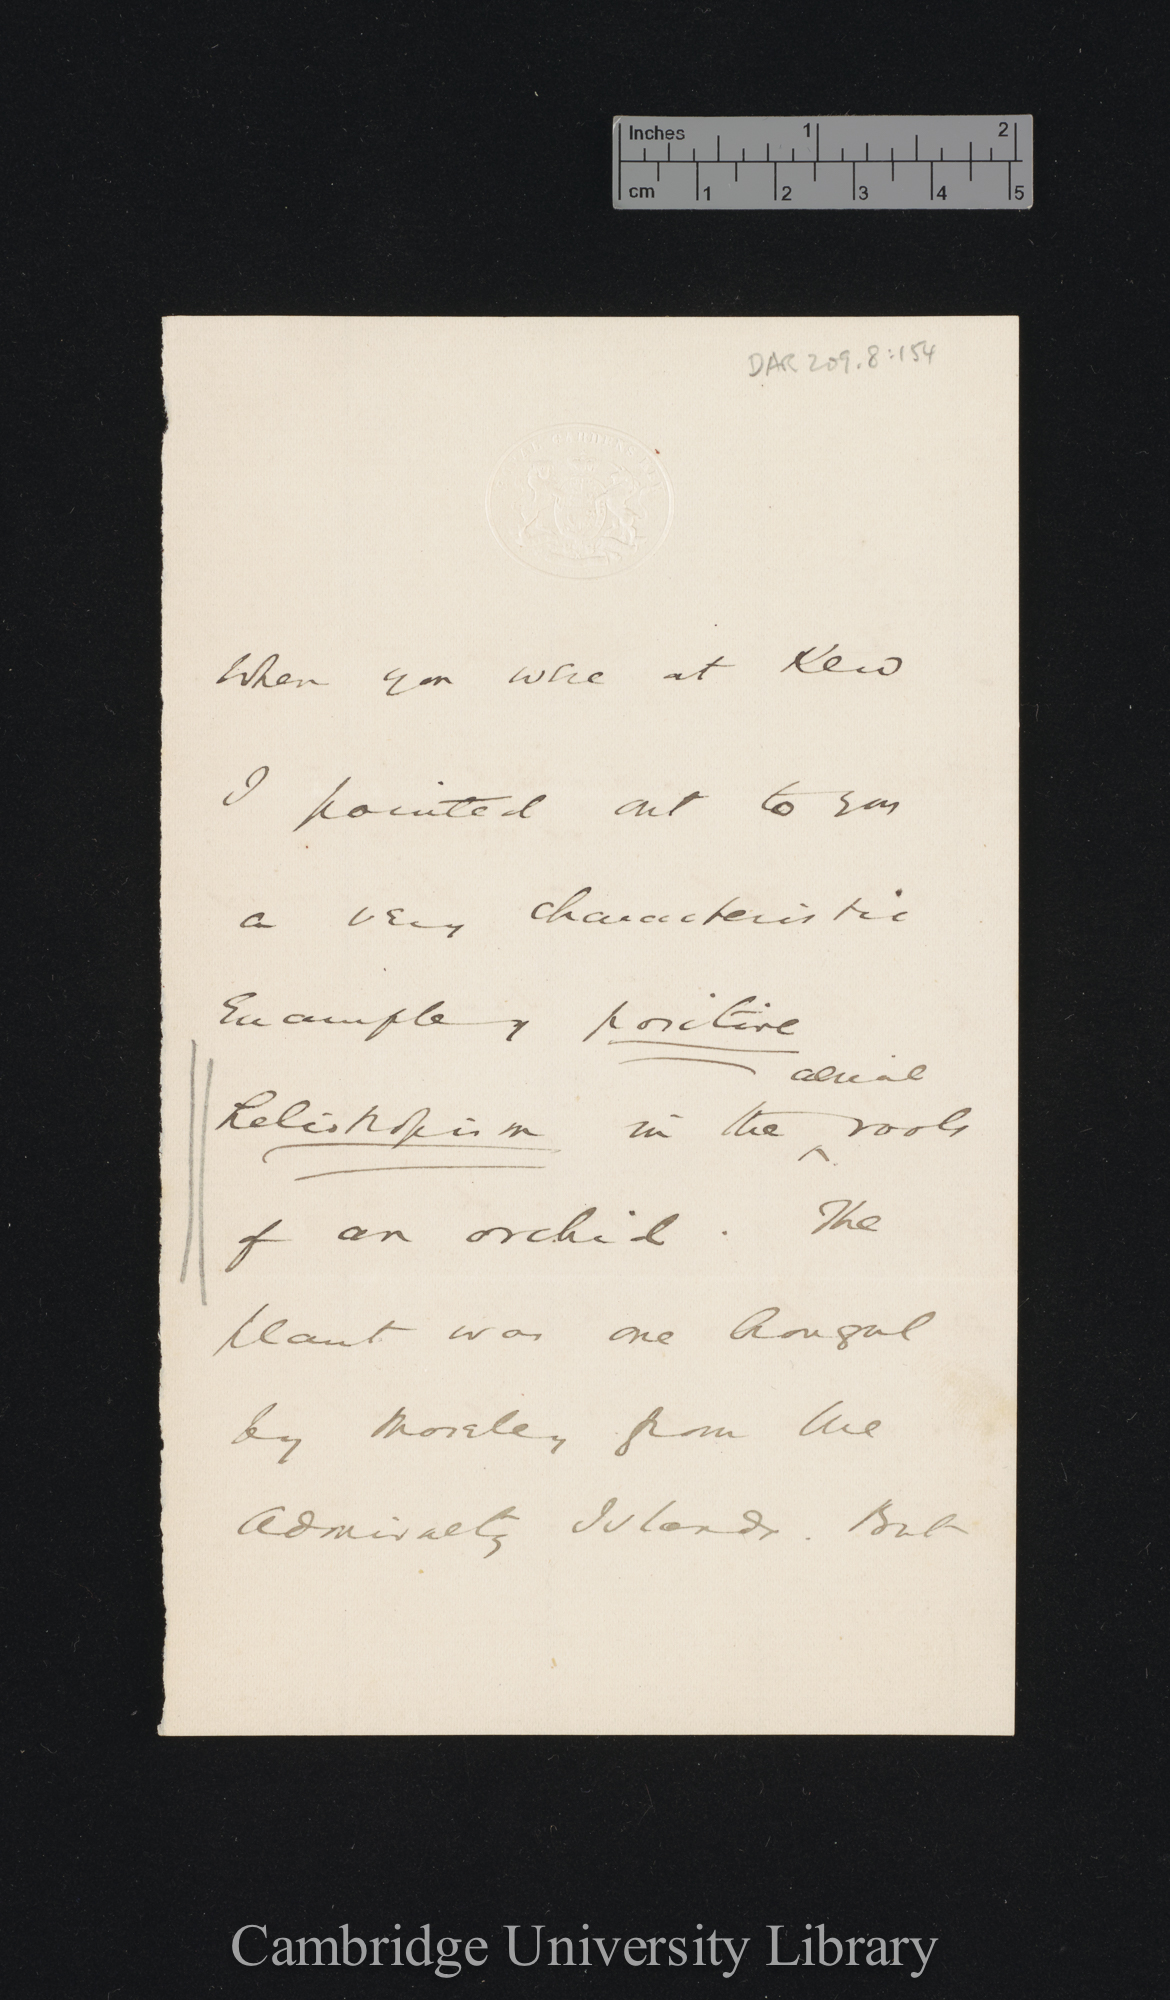 Inches 1 2
cm 1 2 3 4 5
DAR 209.8:154
When you were at Kew
I pointed out to you
a very characteristic
Example of positive
aerial
heliotropism in the ^ roots
of an orchid. The
plant was one brought
by Moseley from the
Admiralty Islands. But
Cambridge University Library